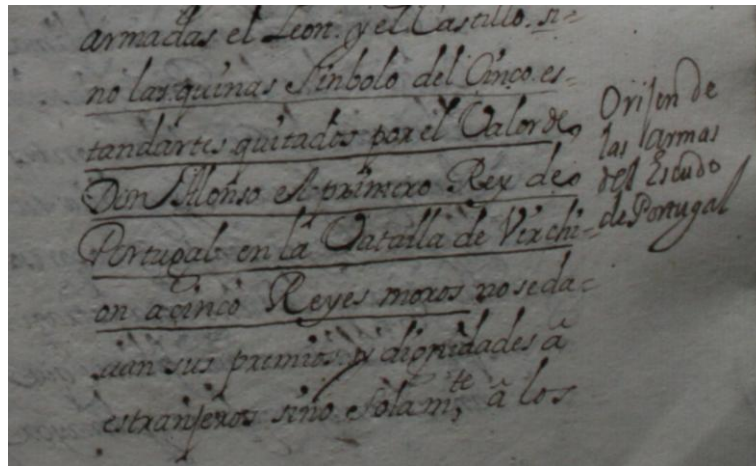 armadas el Leon. y el Castillo. si=
no las quinas Sinbolo del Cinco es=
tandartes quitados por el Valor de
Don Alonso el primero Rey de
Portugal en la Vatalla de Verchi=
on a cinco Reyes moros no se da=
uan sus premios y dignidades â
estranjeros sino solam.te â los
Orijen de
las armas
del Escudo
de Portugal